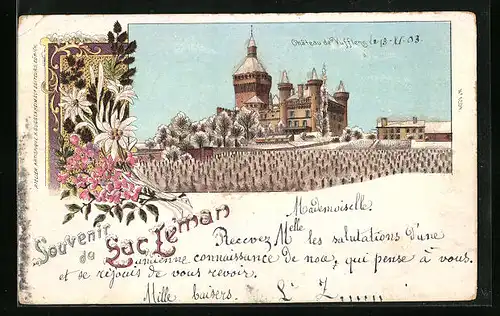 Château de Vufflens le 13-XI-03.
Souvenir
du
Lac Leman
Mademoiselle.
Recevez Melle les salutations d'une
ancienne connaissance de nox, qui pense à vous.
et se rejouis de vous revoir.
Mille baisers.